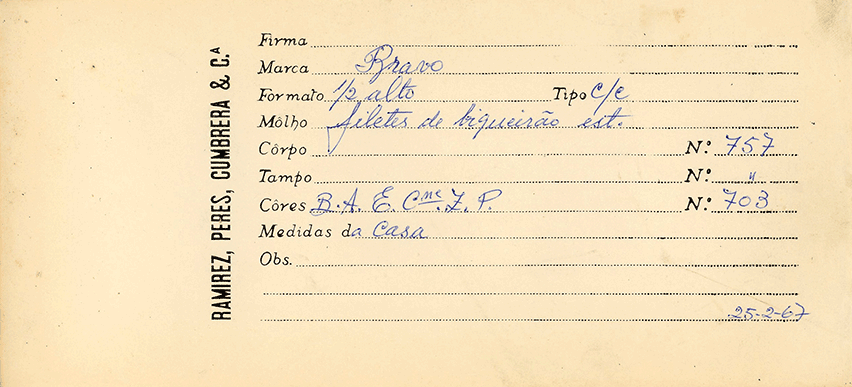 RAMIREZ, PERES, CUMBRERA & C.ª
Firma
Marca Bravo
Formato 1/2 alto Tipo c/c
Môlho filetes de biqueirão est.
Côrpo N.º 757
Tampo N.º "
Côres B. A. E. Cne. Z. P. N.º 703
Medidas da Casa
Obs.
25-2-67